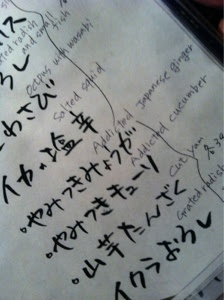 and small fish
Octpus with wasabi
わさび
Salted squid
イカの塩辛
Addicted Japanese ginger
・やみつきみょうが
Addicted cucumber
・やみつきキューリ
Cut yam
・山芋たんざく
Grated radish
イクラおろし